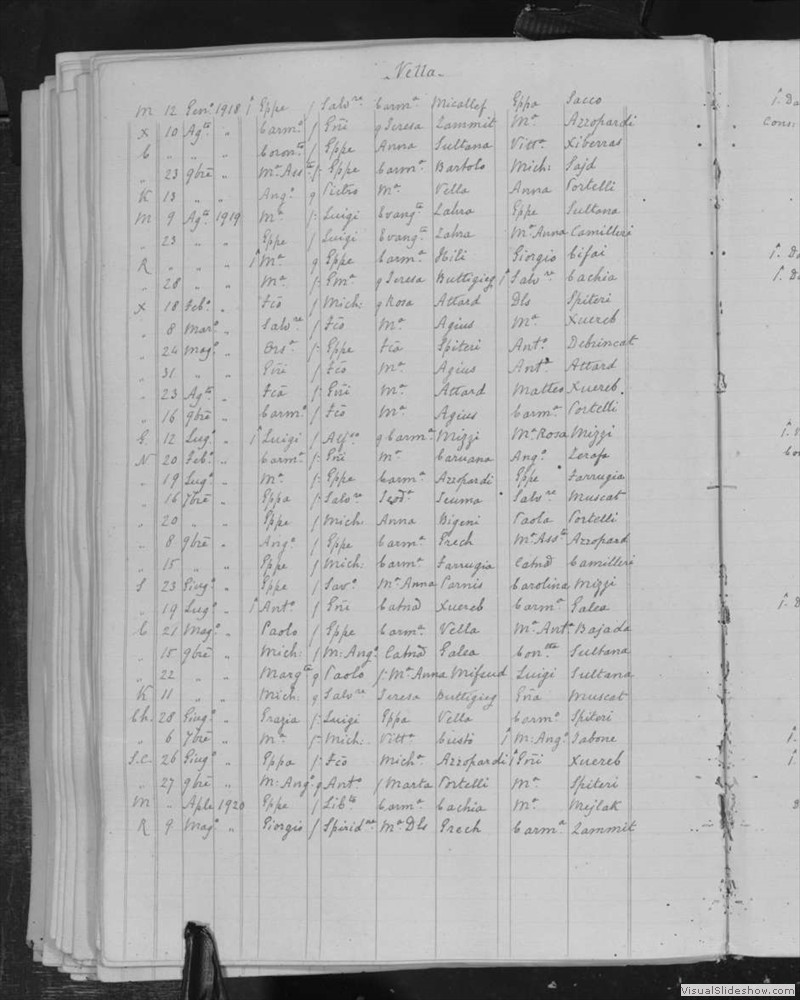 Vella
M 12 Genº 1918 1 Eppe f Salvre Carmª Micallef Eppa Sacco
X 10 Agtº " Carmº f Gñi g Teresa Zammit Mª Azzopardi
C " " " Corontª f Eppe Anna Sultana Vittª Xiberras
" 23 9bre " Mª Asstª f Eppe Carmª Bartolo Mich: Sajd
K 13 " " Angº g Pietro Mª Vella Anna Portelli
M 9 Agtº 1919 Mª f Luigi Evangtª Zahra Eppe Sultana
" 23 " " Eppe f Luigi Evangtª Zahra Mª Anna Camilleri
R " " " 1 Mª g Eppe Carmª Hili Giorgio Cifai
" 28 " " Mª f Gmª g Teresa Buttigieg 1 Salvre Cachia
X 18 Febº " Fcº f Mich: g Rosa Attard Dls Spiteri
" 8 Marº " Salvre f Fcº Mª Agius Mª Xuereb
" 24 Magº " Orsª f Eppe Fcª Spiteri Antº Debrincat
" 31 " " Gñi f Fcº Mª Agius Antº Attard
" 23 Agtº " Fcª f Gñi Mª Attard Matteo Xuereb
" 16 9bre " Carmº f Fcº Mª Agius Carmª Portelli
G. 12 Lugº " 1 Luigi f Alfso g Carmª Mizzi Mª Rosa Mizzi
N 20 Febº " Carmª f Gñi Mª Caruana Angº Zerafa
" 19 Lugº " Mª f Eppe Carmª Azzopardi Eppe Farrugia
" 16 7bre " Eppa f Salvre Teodª Scuma Salvre Muscat
" 20 " " Eppe f Mich: Anna Bigeni Paola Portelli
" 8 9bre " Angº f Eppe Carmª Grech Mª Asstª Azzopard
" 15 " " Eppe f Mich: Carmª Farrugia Catnª Camilleri
S 23 Giugº " Eppe f Savº Mª Anna Parnis Carolina Mizzi
" 19 Lugº " 1 Antº f Gñi Catnª Xuereb Carmª Galea
C 21 Magº " Paolo f Eppe Carmª Vella Mª Antª Bajada
" 15 9bre " Mich: f M: Angº Catnª Galea Contta Sultana
" 22 " " Margtª g Paolo f Mª Anna Mifsud Luigi Sultana
K 11 " " Mich: g Salvre Teresa Buttigieg Gñª Muscat
Ch. 28 Giugº " Grazia f Luigi Eppa Vella Carmº Spiteri
" 6 7bre " Mª f Mich: Vittª Custò 1 M: Angº Tabone
S.C. 26 Giugº " Eppa f Fcº Michª Azzopardi 1 Gñi Xuereb
" 27 9bre " M: Angº g Antº f Marta Portelli Mª Spiteri
M " Aple 1920 Eppe f Libtº Carmª Cachia Mª Mejlak
R 9 Magº " Giorgio f Spiridne Mª Dls Grech Carmª Zammit
VisualSlideshow.com